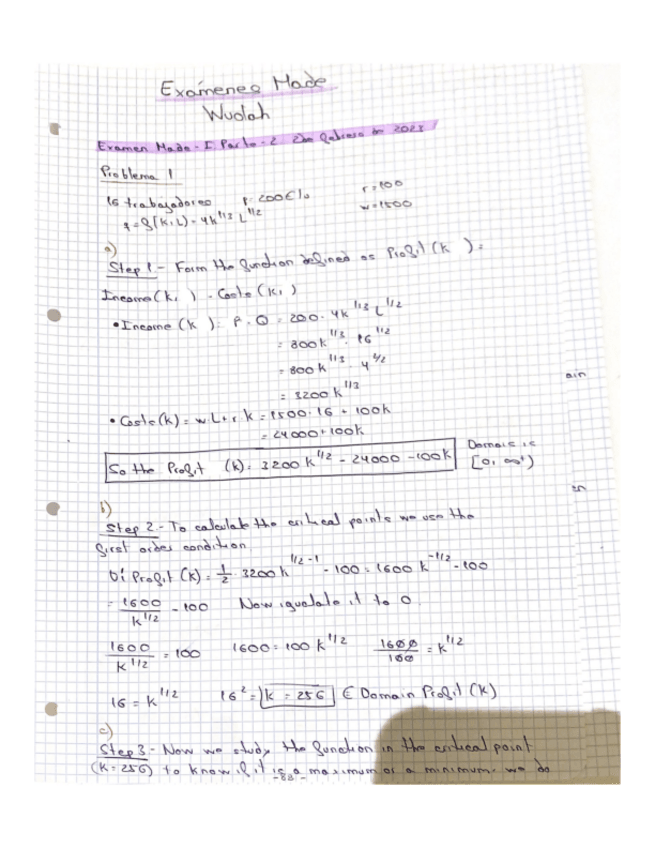 Exámenes Made
Wuolah
Examen Made - I Parte - 2 de 2023
Problema 1
16 trabajadores P=200€/u r=100
q=f(K,L)=4K^1/3 L^1/2 w=1500
a)
Step 1.- Form the function defined as Profit (K ) =
Income (K, ) - Costs (K, )
• Income (K ): P.Q = 200. 4K^1/3 L^1/2
= 800K^1/3 . 16^1/2
= 800K^1/3 . 4^2/2
= 3200K^1/2
• Costs (K) = wL+rK = 1500.16 + 100K
= 24000+100K
So the Profit (K) = 3200K^1/2 - 24000 - 100K Domain is
[0, ∞+)
ain
en
b)
Step 2.- To calculate the critical points we use the
first order condition.
Profit (K) = 1/2 . 3200K^1/2-1 - 100 = 1600K^-1/2 - 100
= 1600/K^1/2 - 100 Now igualate it to 0.
1600/K^1/2 = 100 1600 = 100K^1/2 1600/100 = K^1/2
16 = K^1/2 16^2 = K = 256 ∈ Domain Profit (K)
c)
Step 3 - Now we study the function in the critical point
(K=256) to know if it is a maximum or a minimum. we do
-88-